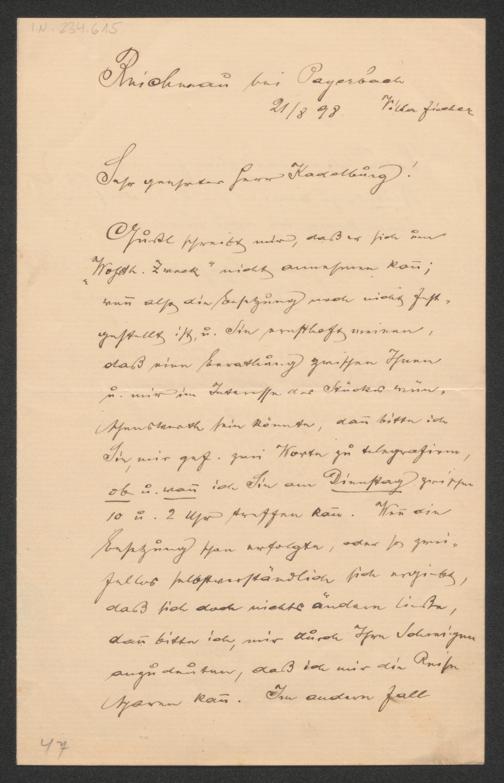 I.N. 234.615
Reichenau bei Payerbach
21/8 98 Villa Fischer
Sehr geehrter Herr Kadelburg!
Gustl schreibt mir, daß er sich um
"Wohlth. Zweck" nicht annehmen kañ;
weñ also die Besetzung noch nicht fest-
gestellt ist, u. Sie ernsthaft meinen,
daß eine Berathung zwischen Ihnen
u. mir im Interesse des Stückes wün-
schenswerth sein könnte, dañ bitte ich
Sie, mir gef. zwei Worte zu telegrafiren,
ob u. wañ ich Sie am Dienstag zwischen
10 u. 2 Uhr treffen kañ. Weñ die
Besetzung schon erfolgte, oder so zwei-
fellos selbstverständlich sich ergiebt,
daß sich doch nichts ändern ließe,
dañ bitte ich, mir durch Ihr Schweigen
anzudeuten, daß ich mir die Reise
sparen kañ. Im andern Fall
47